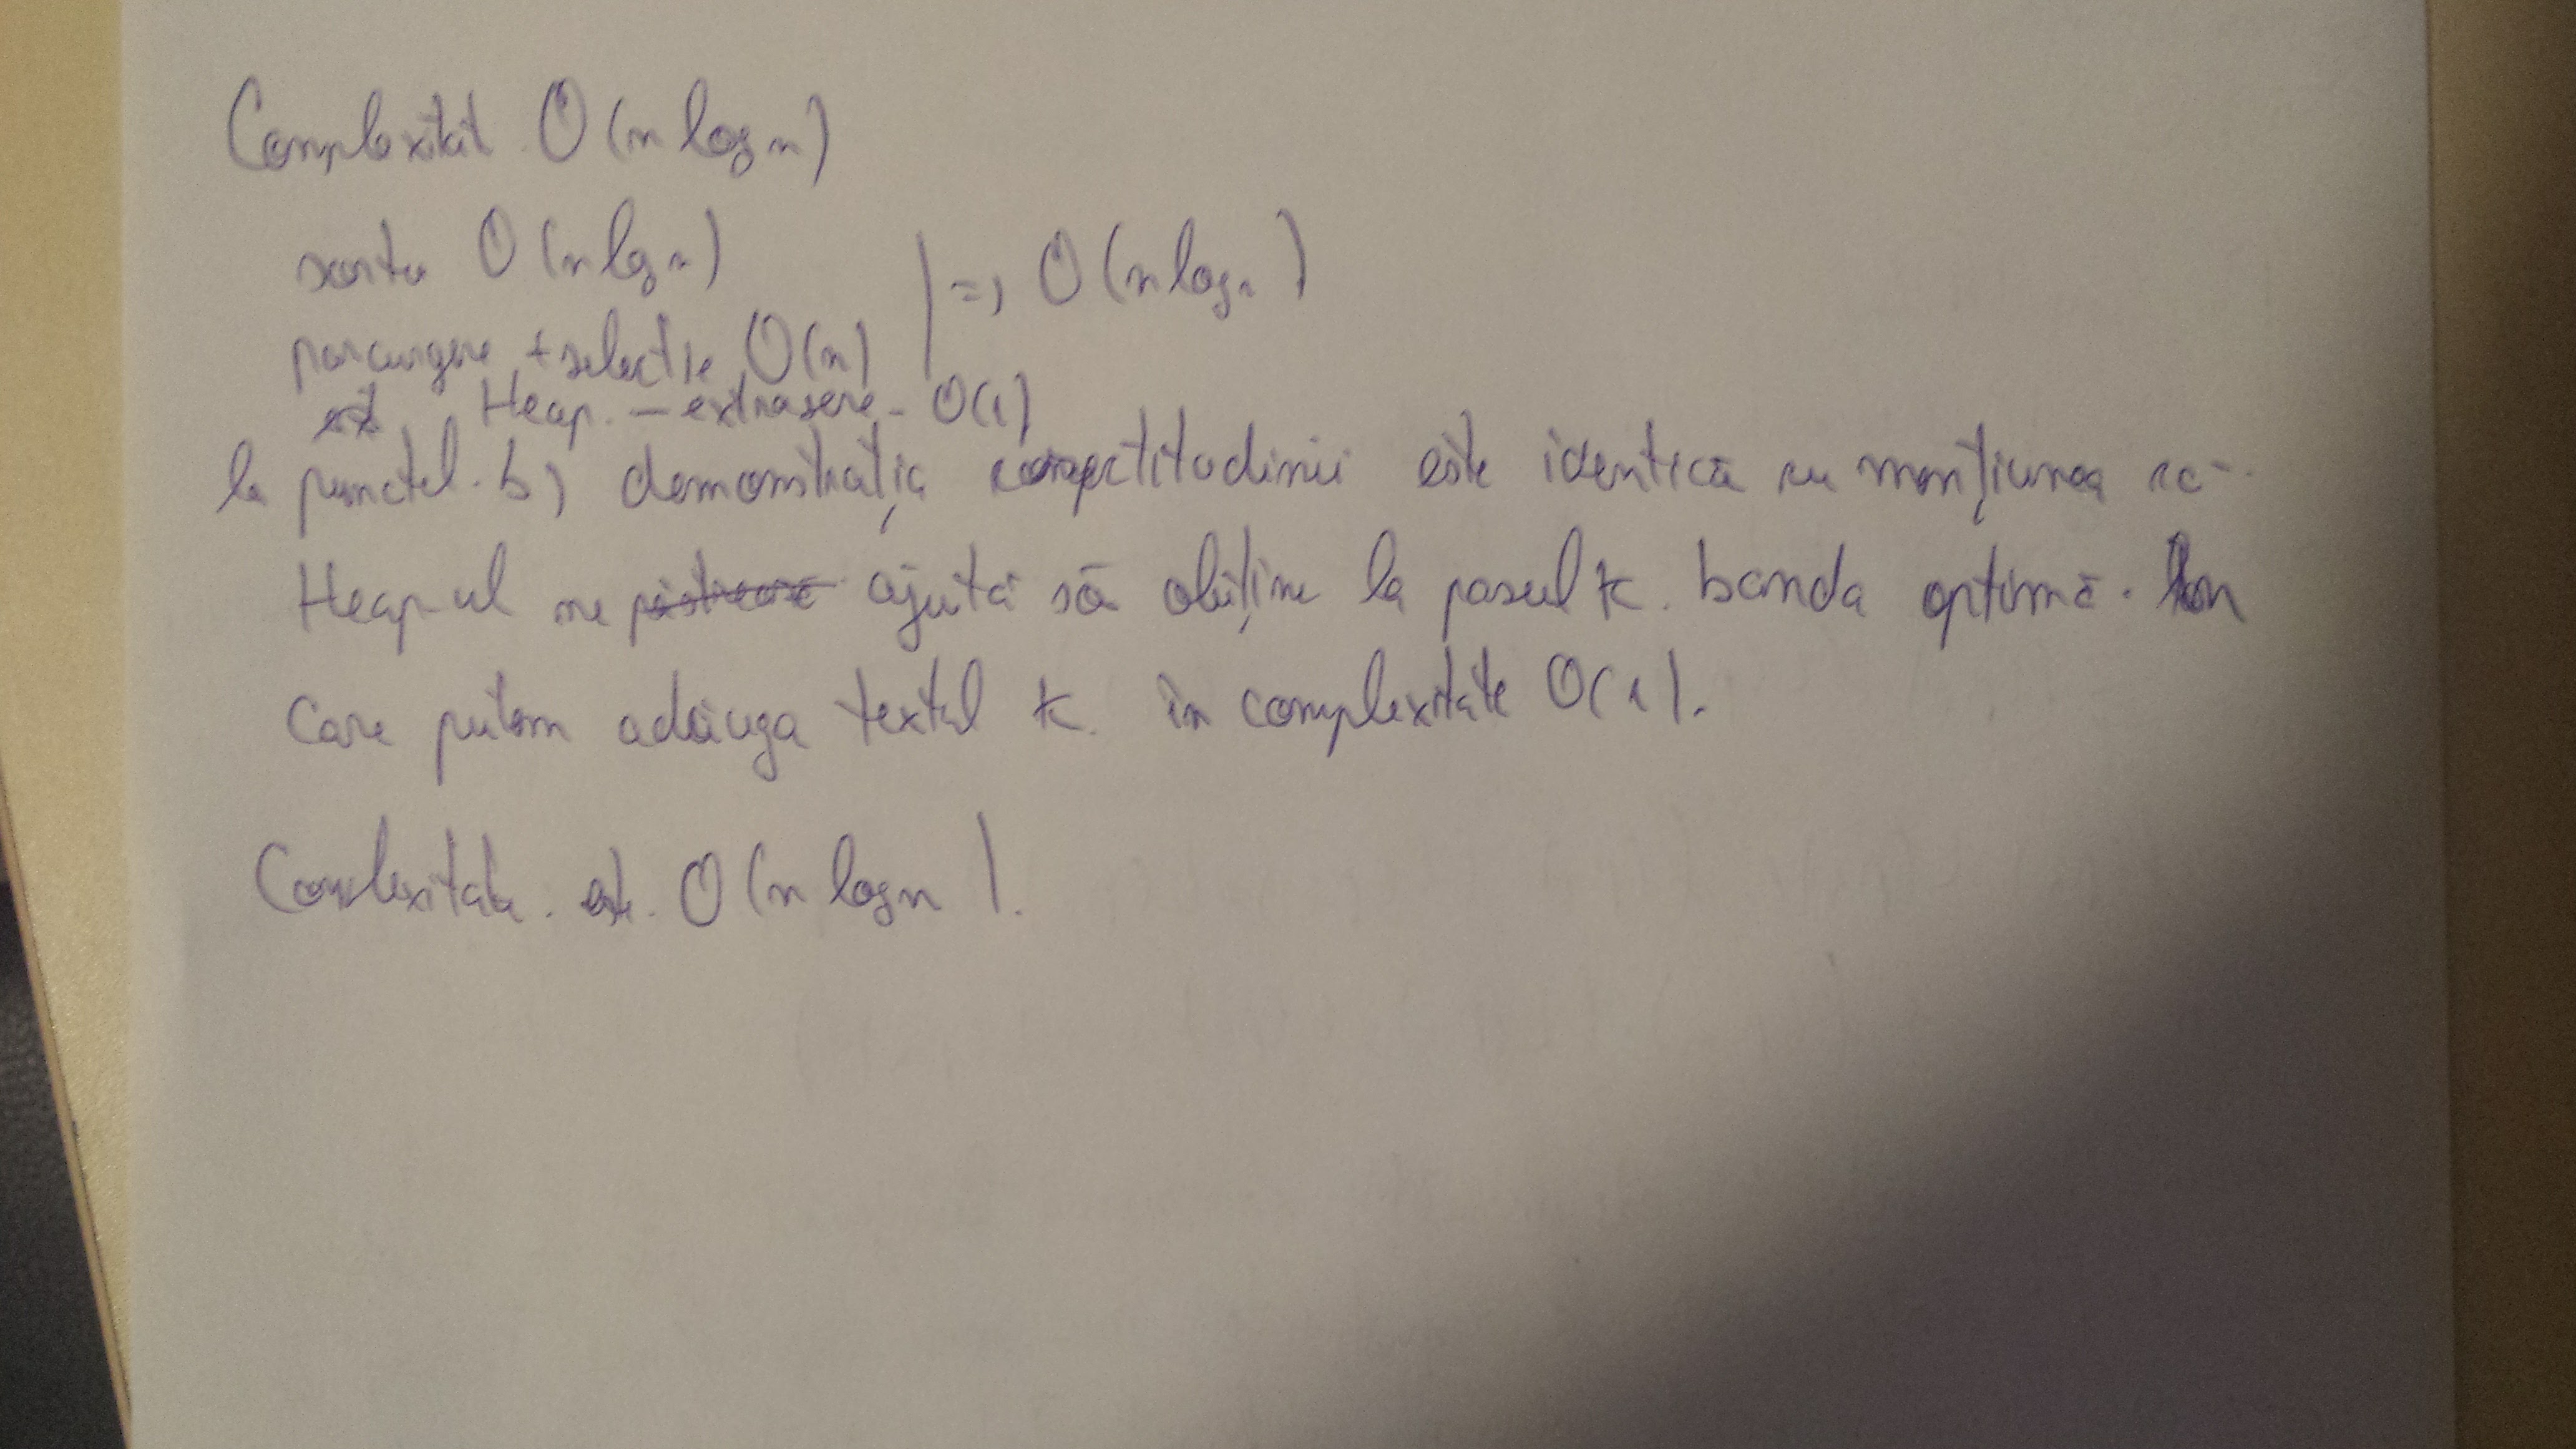 Complexitat O(n log n)
sorta O(n log n)
parcurgere + selectie O(n) | => O(n log n)
Heap. - extragere - O(1)
la punctul b) demonstrația corectitudinii este identică cu mențiunea că
Heap-ul ne ajută să obține la pasul k. banda optimă. în
care putem adăuga textul k. în complexitate O(1).
Complexitata. este. O(n log n).